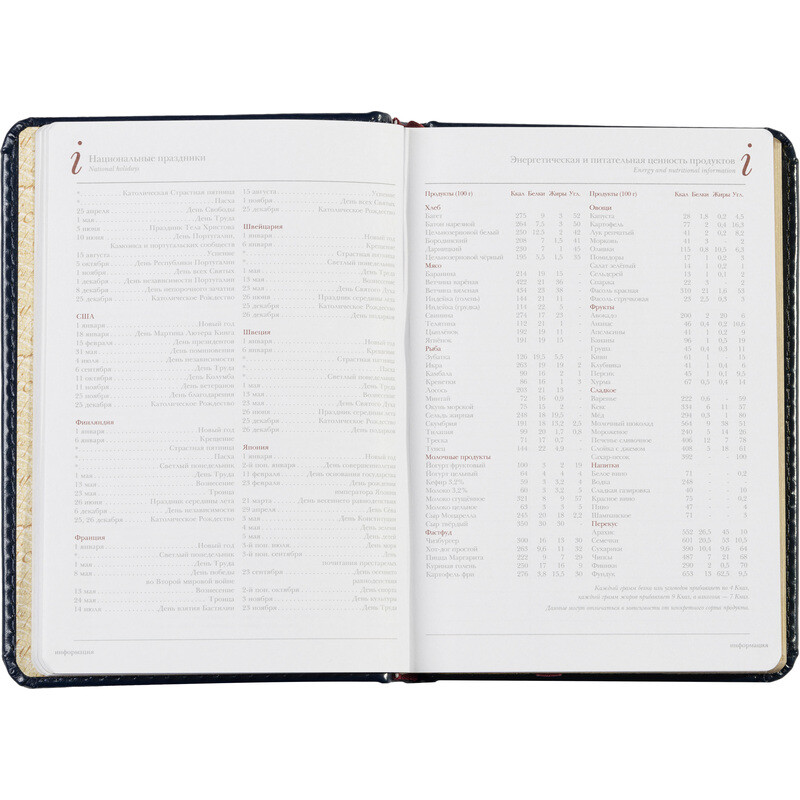 Национальные праздники
National holidays
* Католическая Страстная пятница
* Пасха
25 апреля День Свободы
1 мая День Труда
3 июня Праздник Тела Христова
10 июня День Португалии,
Камоэнса и португальских сообществ
15 августа Успение
5 октября День Республики Португалии
1 ноября День всех Святых
1 декабря День независимости Португалии
8 декабря День непорочного зачатия
25 декабря Католическое Рождество
США
1 января Новый год
18 января День Мартина Лютера Кинга
15 февраля День президентов
31 мая День поминовения
4 июля День независимости
6 сентября День Труда
11 октября День Колумба
11 ноября День ветеранов
25 ноября День благодарения
25 декабря Католическое Рождество
Финляндия
1 января Новый год
6 января Крещение
* Страстная пятница
* Пасха
* Светлый понедельник
1 мая День Труда
13 мая Вознесение
23 мая Троица
26 июня Праздник середины лета
6 декабря День независимости
25, 26 декабря Католическое Рождество
Франция
1 января Новый год
* Светлый понедельник
1 мая День Труда
8 мая День победы
во Второй мировой войне
13 мая Вознесение
24 мая Троица
14 июля День взятия Бастилии
15 августа Успение
1 ноября День всех Святых
25 декабря Католическое Рождество
Швейцария
1 января Новый год
6 января Крещение
* Страстная пятница
Швеция
1 января Новый год
6 января Крещение
* Страстная пятница
* Пасха
* Светлый понедельник
1 мая День Труда
13 мая Вознесение
Япония
1 января Новый год
2-й пон. января День совершеннолетия
11 февраля День основания государства
23 февраля День рождения
императора Японии
21 марта День весеннего равноденствия
29 апреля День Сёва
3 мая День Конституции
4 мая День зелени
5 мая День детей
День моря
3-й пон. сентября День
почитания престарелых
23 сентября День осеннего
равноденствия
2-й пон. октября День спорта
3 ноября День культуры
23 ноября День Труда
информация
Энергетическая и питательная ценность продуктов
Energy and nutritional information
Продукты (100 г) Ккал Белки Жиры Угл.
Хлеб
Багет 275 9 3 52
Батон нарезной 264 7,5 3 50
Цельнозерновой белый 259 12,5 2 42
Бородинский 208 7 1,5 41
Дарницкий 230 7 1 45
Цельнозерновой чёрный 195 5,5 1,5 35
Мясо
Баранина 214 19 15 -
Ветчина варёная 422 21 36 -
Ветчина вяленая 434 23 38 -
Индейка (голень) 144 21 11 -
Индейка (грудка) 114 22 3 -
Свинина 274 17 22 -
Телятина 112 21 1 -
Цыплёнок 192 19 11 -
Ягнёнок 191 19 15 -
Рыба
Зубатка 126 19,5 5,5 -
Икра 265 19 19 2
Камбала 90 16 2 1
Креветки 96 16 1 3
Лосось 205 21 13 -
Минтай 72 16 0,9 -
Окунь морской 75 15 2 -
Сельдь жирная 248 18 19,5 -
Скумбрия 191 18 13,2 2,4
Тилапия 99 20 1,7 0,8
Треска 71 17 0,7 -
Тунец 144 22 4,9 -
Молочные продукты
Йогурт фруктовый 100 3 2 19
Йогурт цельный 64 4 3 4
Кефир 3,2% 59 3 3,2 4
Молоко 3,2% 60 3 3,2 5
Молоко сгущённое 321 8 9 57
Молоко цельное 63 3 3 5
Сыр Моцарелла 245 20 18 2,2
Сыр твёрдый 350 20 30 -
Фастфуд
Чизбургер 300 16 13 30
Хот-дог простой 265 9,6 11 32
Пицца Маргарита 222 9 9 27
Куриная голень 250 17 16 9
Картофель фри 276 3,8 15,5 30
Продукты (100 г) Ккал Белки Жиры Угл.
Овощи
Капуста 28 1,8 0,2 4,5
Картофель 77 2 0,4 16,3
Лук репчатый 41 2 0,2 8,2
Морковь 41 3 - 2
Оливки 115 0,8 10,5 6,3
Помидоры 17 1 0,2 3
Салат зелёный 14 1 0,2 1
Сельдерей 13 1 0,1 2
Спаржа 22 3 - 2
Фасоль красная 310 21 1,6 53
Фасоль стручковая 23 2,5 0,3 3
Фрукты
Авокадо 200 2 20 6
Ананас 48 0,4 0,2 10,6
Апельсины 41 1 0,2 9
Бананы 96 1 0,5 19
Груша 45 0,4 0,3 11
Киви 61 1 - 15
Клубника 41 1 0,4 6
Персик 45 1 0,1 9,5
Хурма 67 0,5 0,4 14
Сладкое
Варенье 222 0,6 - 59
Кекс 334 6 11 57
Мёд 294 0,3 1 80
Молочный шоколад 564 9 38 51
Мороженое 240 5 14 26
Печенье сливочное 406 12 7 78
Слойка с джемом 406 5 18 61
Сахар-песок 392 - - -
Напитки
Белое вино 71 - - 0,2
Водка 248 - - -
Сладкая газировка 40 - - 10
Красное вино 73 - - 0,2
Пиво 47 - - 4
Шампанское 71 - - 3
Перекус
Арахис 552 26,5 45 10
Семечки 601 20,5 53 10,5
Сухарики 390 10,4 9,6 64
Чипсы 487 7 21 68
Финики 290 2 0,5 70
Фундук 653 13 62,5 9,5
Каждый грамм белка или углевода прибавляет по 4 Ккал
каждый грамм жиров прибавляет 9 Ккал, а алкоголя — 7 Ккал
Данные могут отличаться в зависимости от конкретного сорта продукта
информация